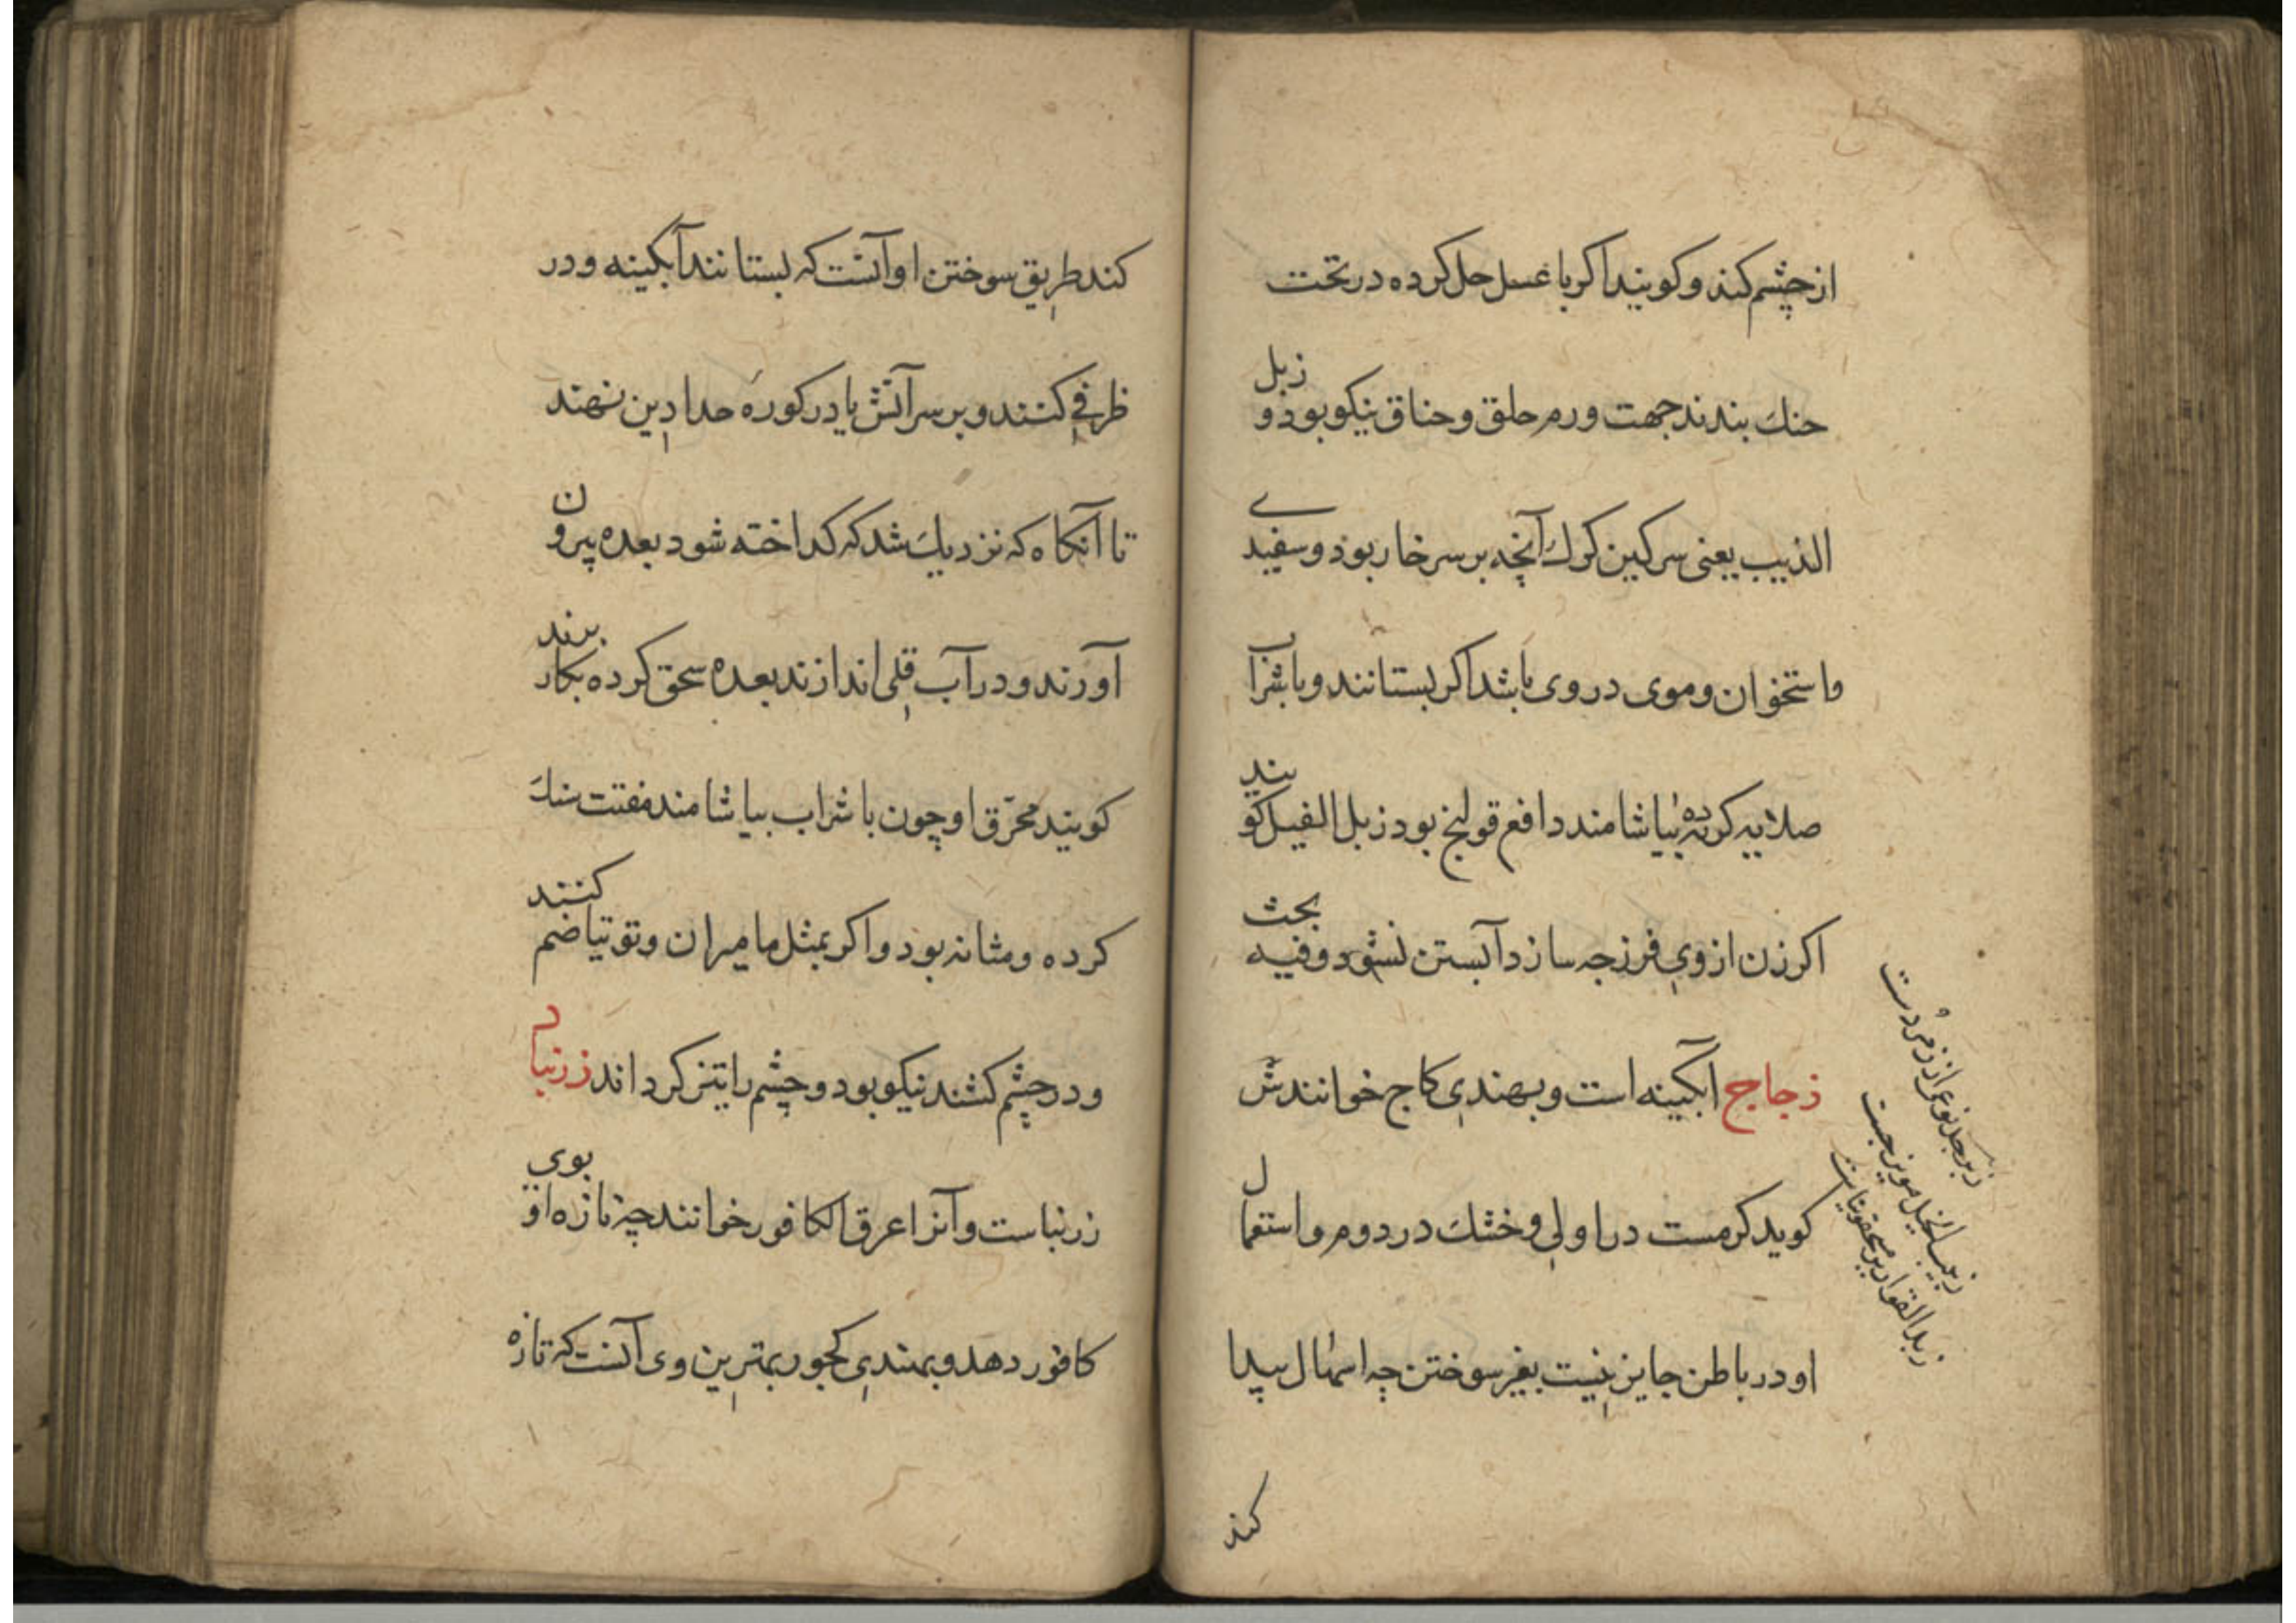 از چشم کند و کویند اکر با عسل حل کرده در تحت
حنك بندند جهت ورم حلق و خناق نیکو بود و زبل
الذیب یعنی سرکین کرك آنچه بر سر خار بود و سفیدے
و استخوان و موی در وی باشد اکر بستانند و با شراب
صلایه کرده بیاشامند دافع قولنج بود زبل الفیل کویند
اکر زن از وی فرزجه سازد آبستن نشود و فیه بحث
زجاج ابکینه است و بهندی کاج خوانندش
کوید کرمست در اولی و خشك در دوم و استعمال
او در باطن جایز نیست بغیر سوختن چه اسهال پیدا
کند
زبرجد نوعی از زمردست
زبیب الجبل مویزجست
زبد القواریر مسحقونیاست
کند طریق سوختن او آنست که بستانند آبکینه و در
ظرفی کنند و بر سر آتش یا در کوره حدادین نهند
تا آنکاه که نزدیك شد که کداخته شود بعده بیرون
آورند و در آب قلی اندازند بعده سحق کرده بکار برند
کویند محرّق او چون با شراب بیاشامند مفتت سنك
کرده و مثانه بود و اکر بمثل مامیران و توتیا ضم کنند
و در چشم کشند نیکو بود و چشم را تیز کرداند زرنباد
زرنباست و آنرا عرق الکافور خوانند چه تازه او بوی
کافور دهد و بهندی کجور بهترین وی آنست که تازه